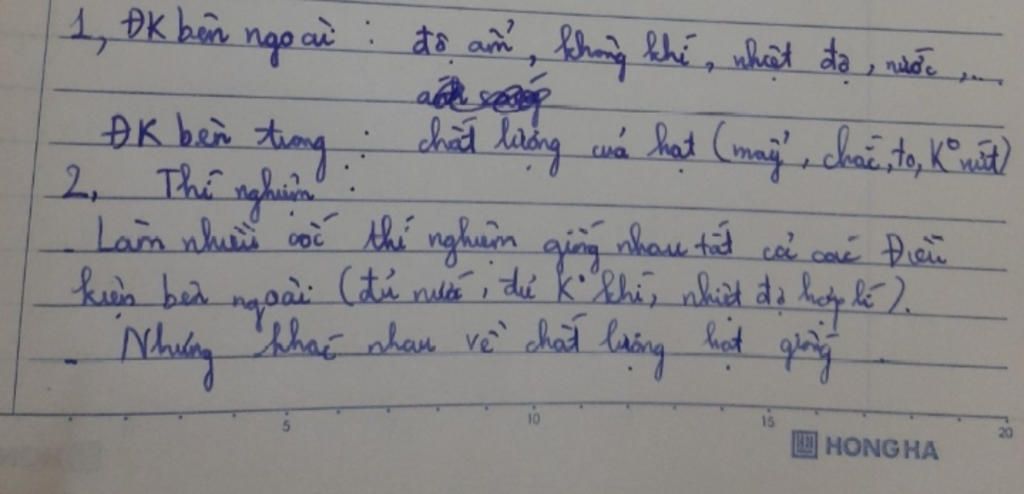 1, ĐK bên ngoài : độ ẩm, không khí, nhiệt độ, nước,...
ĐK bên trong : chất lượng của hạt (mẩy, chắc, to, K° nứt)
2, Thí nghiệm :
- Làm nhiều cốc thí nghiệm giống nhau tất cả các Điều
kiện bên ngoài (đủ nước, đủ K° khí, nhiệt độ hợp lí).
- Nhưng khác nhau về chất lượng hạt giống.
5 10 15 20
HONG HA